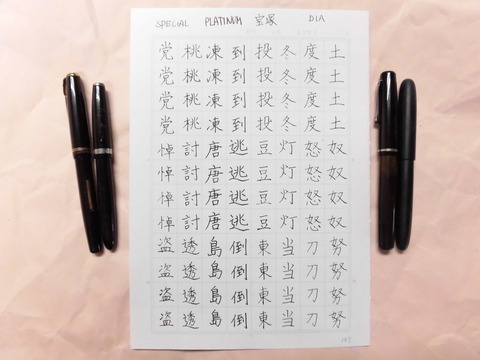 SPECIAL PLATINUM 宝塚 DIA
党 桃 凍 到 投 冬 度 土
党 桃 凍 到 投 冬 度 土
党 桃 凍 到 投 冬 度 土
党 桃 凍 到 投 冬 度 土
悼 討 唐 逃 豆 灯 怒 奴
悼 討 唐 逃 豆 灯 怒 奴
悼 討 唐 逃 豆 灯 怒 奴
悼 討 唐 逃 豆 灯 怒 奴
盗 透 島 倒 東 当 刀 努
盗 透 島 倒 東 当 刀 努
盗 透 島 倒 東 当 刀 努
盗 透 島 倒 東 当 刀 努